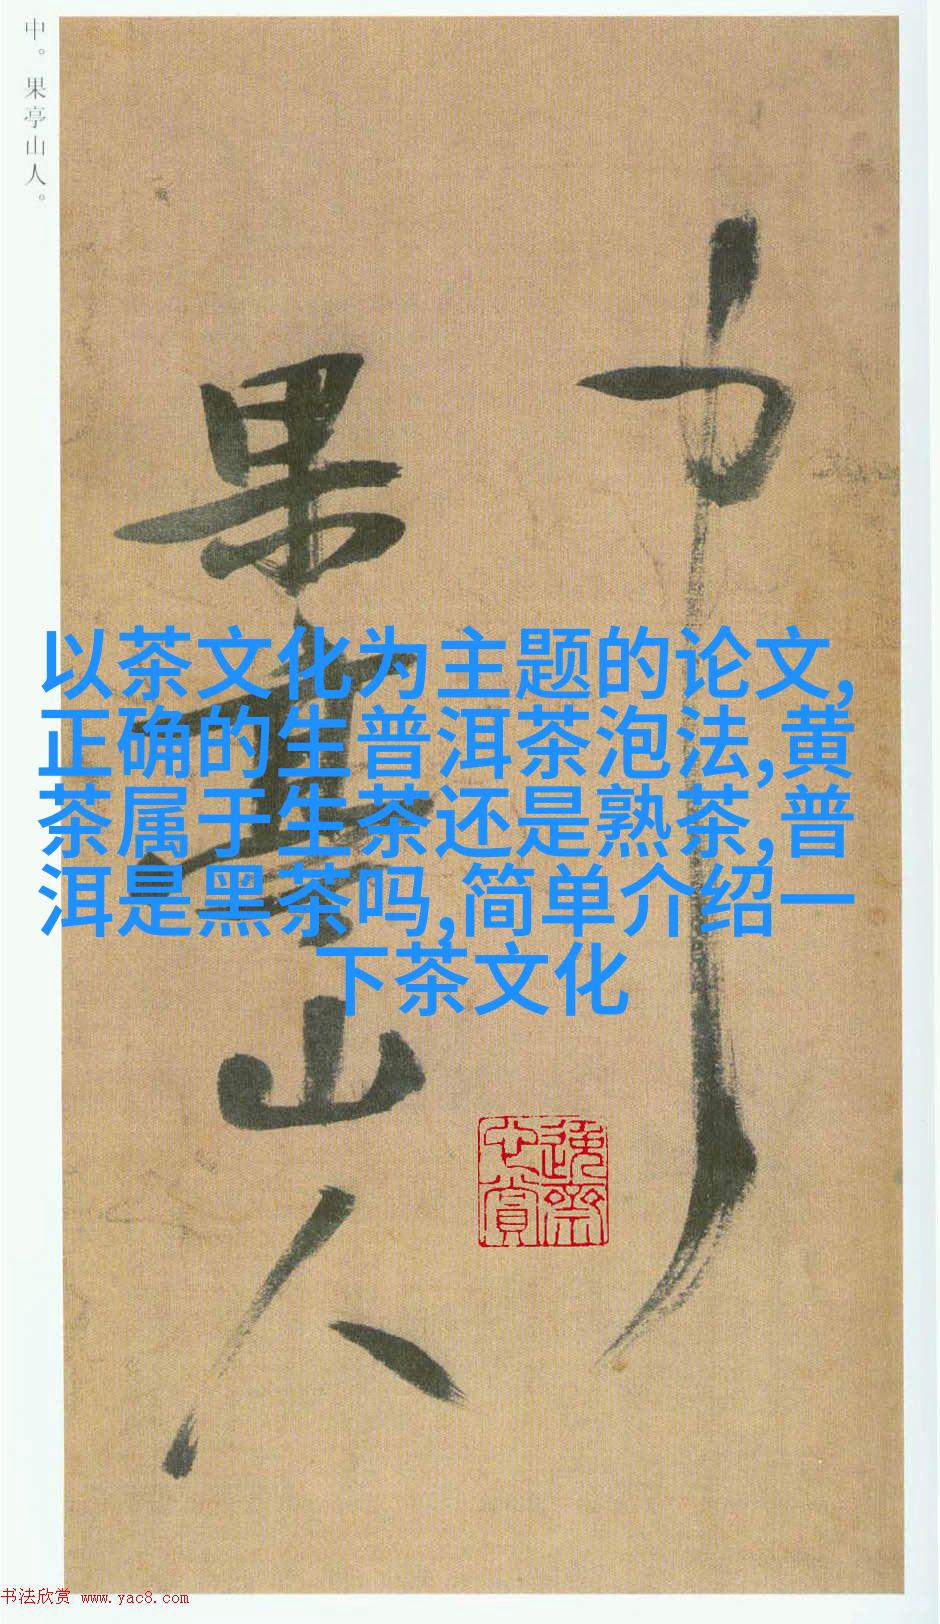 中。果亭山人。
中
果亭山人
以茶文化为主题的论文,
正确的生普洱茶泡法,黄
茶属于生茶还是熟茶,普
洱是黑茶吗,简单介绍一
下茶文化
逸斋
心赏
书法欣赏 www.yac8.com